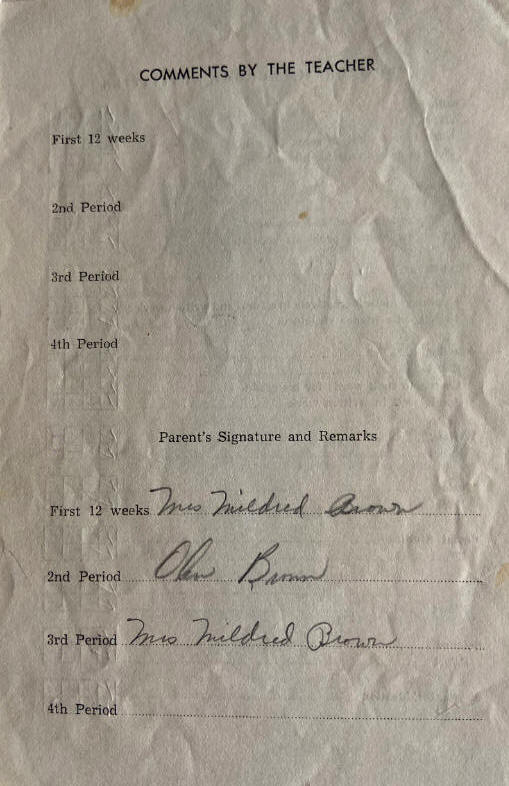 COMMENTS BY THE TEACHER
First 12 weeks
2nd Period
3rd Period
4th Period
Parent's Signature and Remarks
First 12 weeks Mrs Mildred Brown
2nd Period Brown
3rd Period Mrs Mildred Brown
4th Period